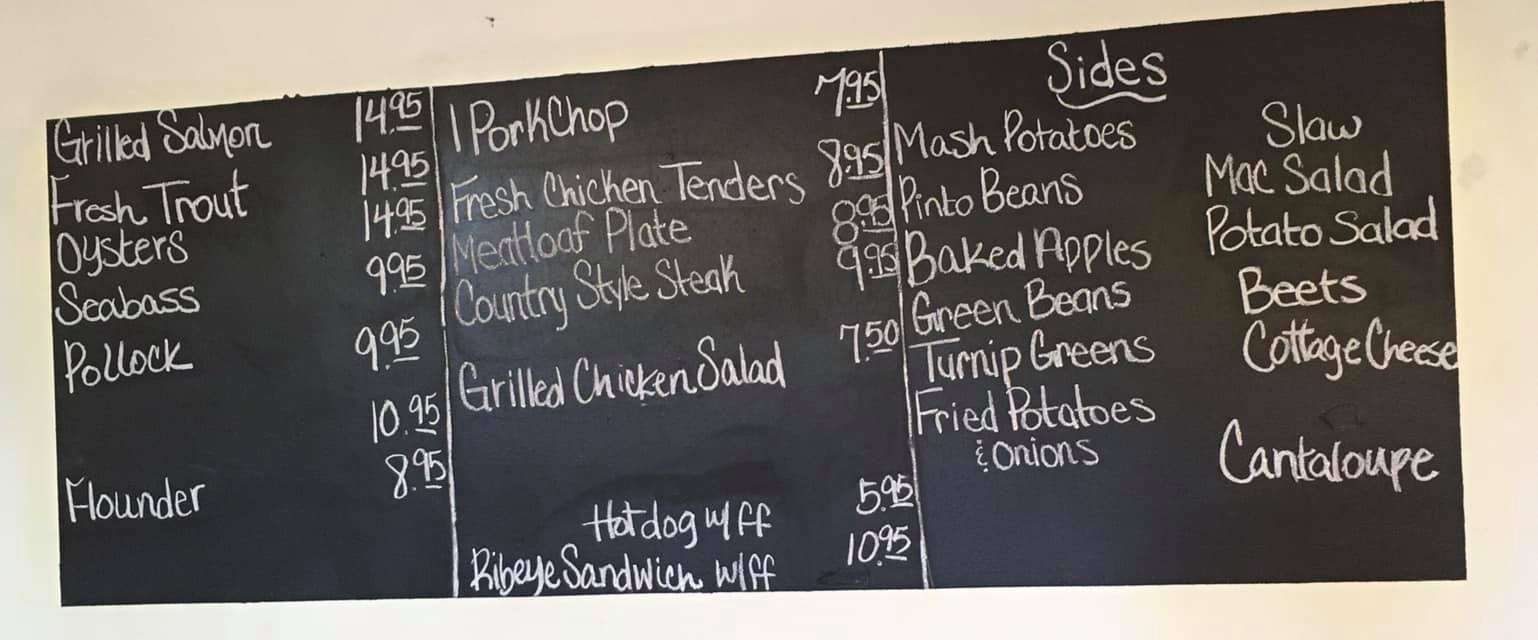 Grilled Salmon 14.95
Fresh Trout 14.95
Oysters 14.95
Seabass 9.95
Pollock 9.95
10.95
Flounder 8.95
1 PorkChop 7.95
Fresh Chicken Tenders 8.95
Meatloaf Plate 8.95
Country Style Steak 9.95
Grilled Chicken Salad 7.50
Hotdog w/ff 5.95
Ribeye Sandwich w/ff 10.95
Sides
Mash Potatoes
Pinto Beans
Baked Apples
Green Beans
Turnip Greens
Fried Potatoes
& Onions
Slaw
Mac Salad
Potato Salad
Beets
Cottage Cheese
Cantaloupe